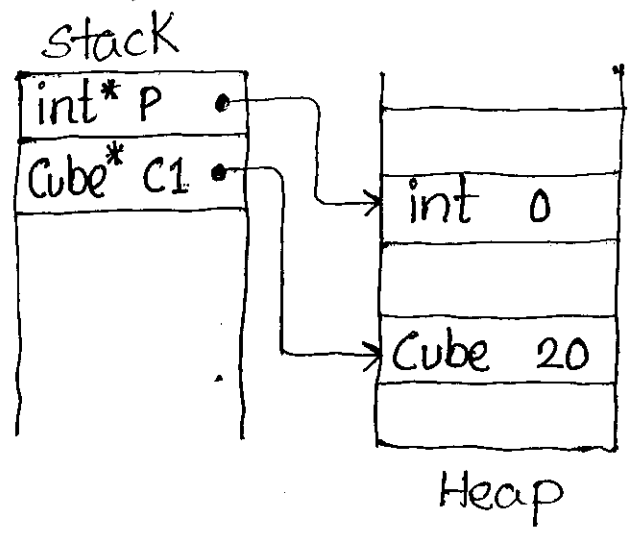 Stack
int* P
Cube* C1
int 0
Cube 20
Heap